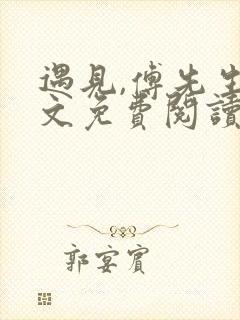 遇見,傅先生
文免費閱讀
郭宴賓